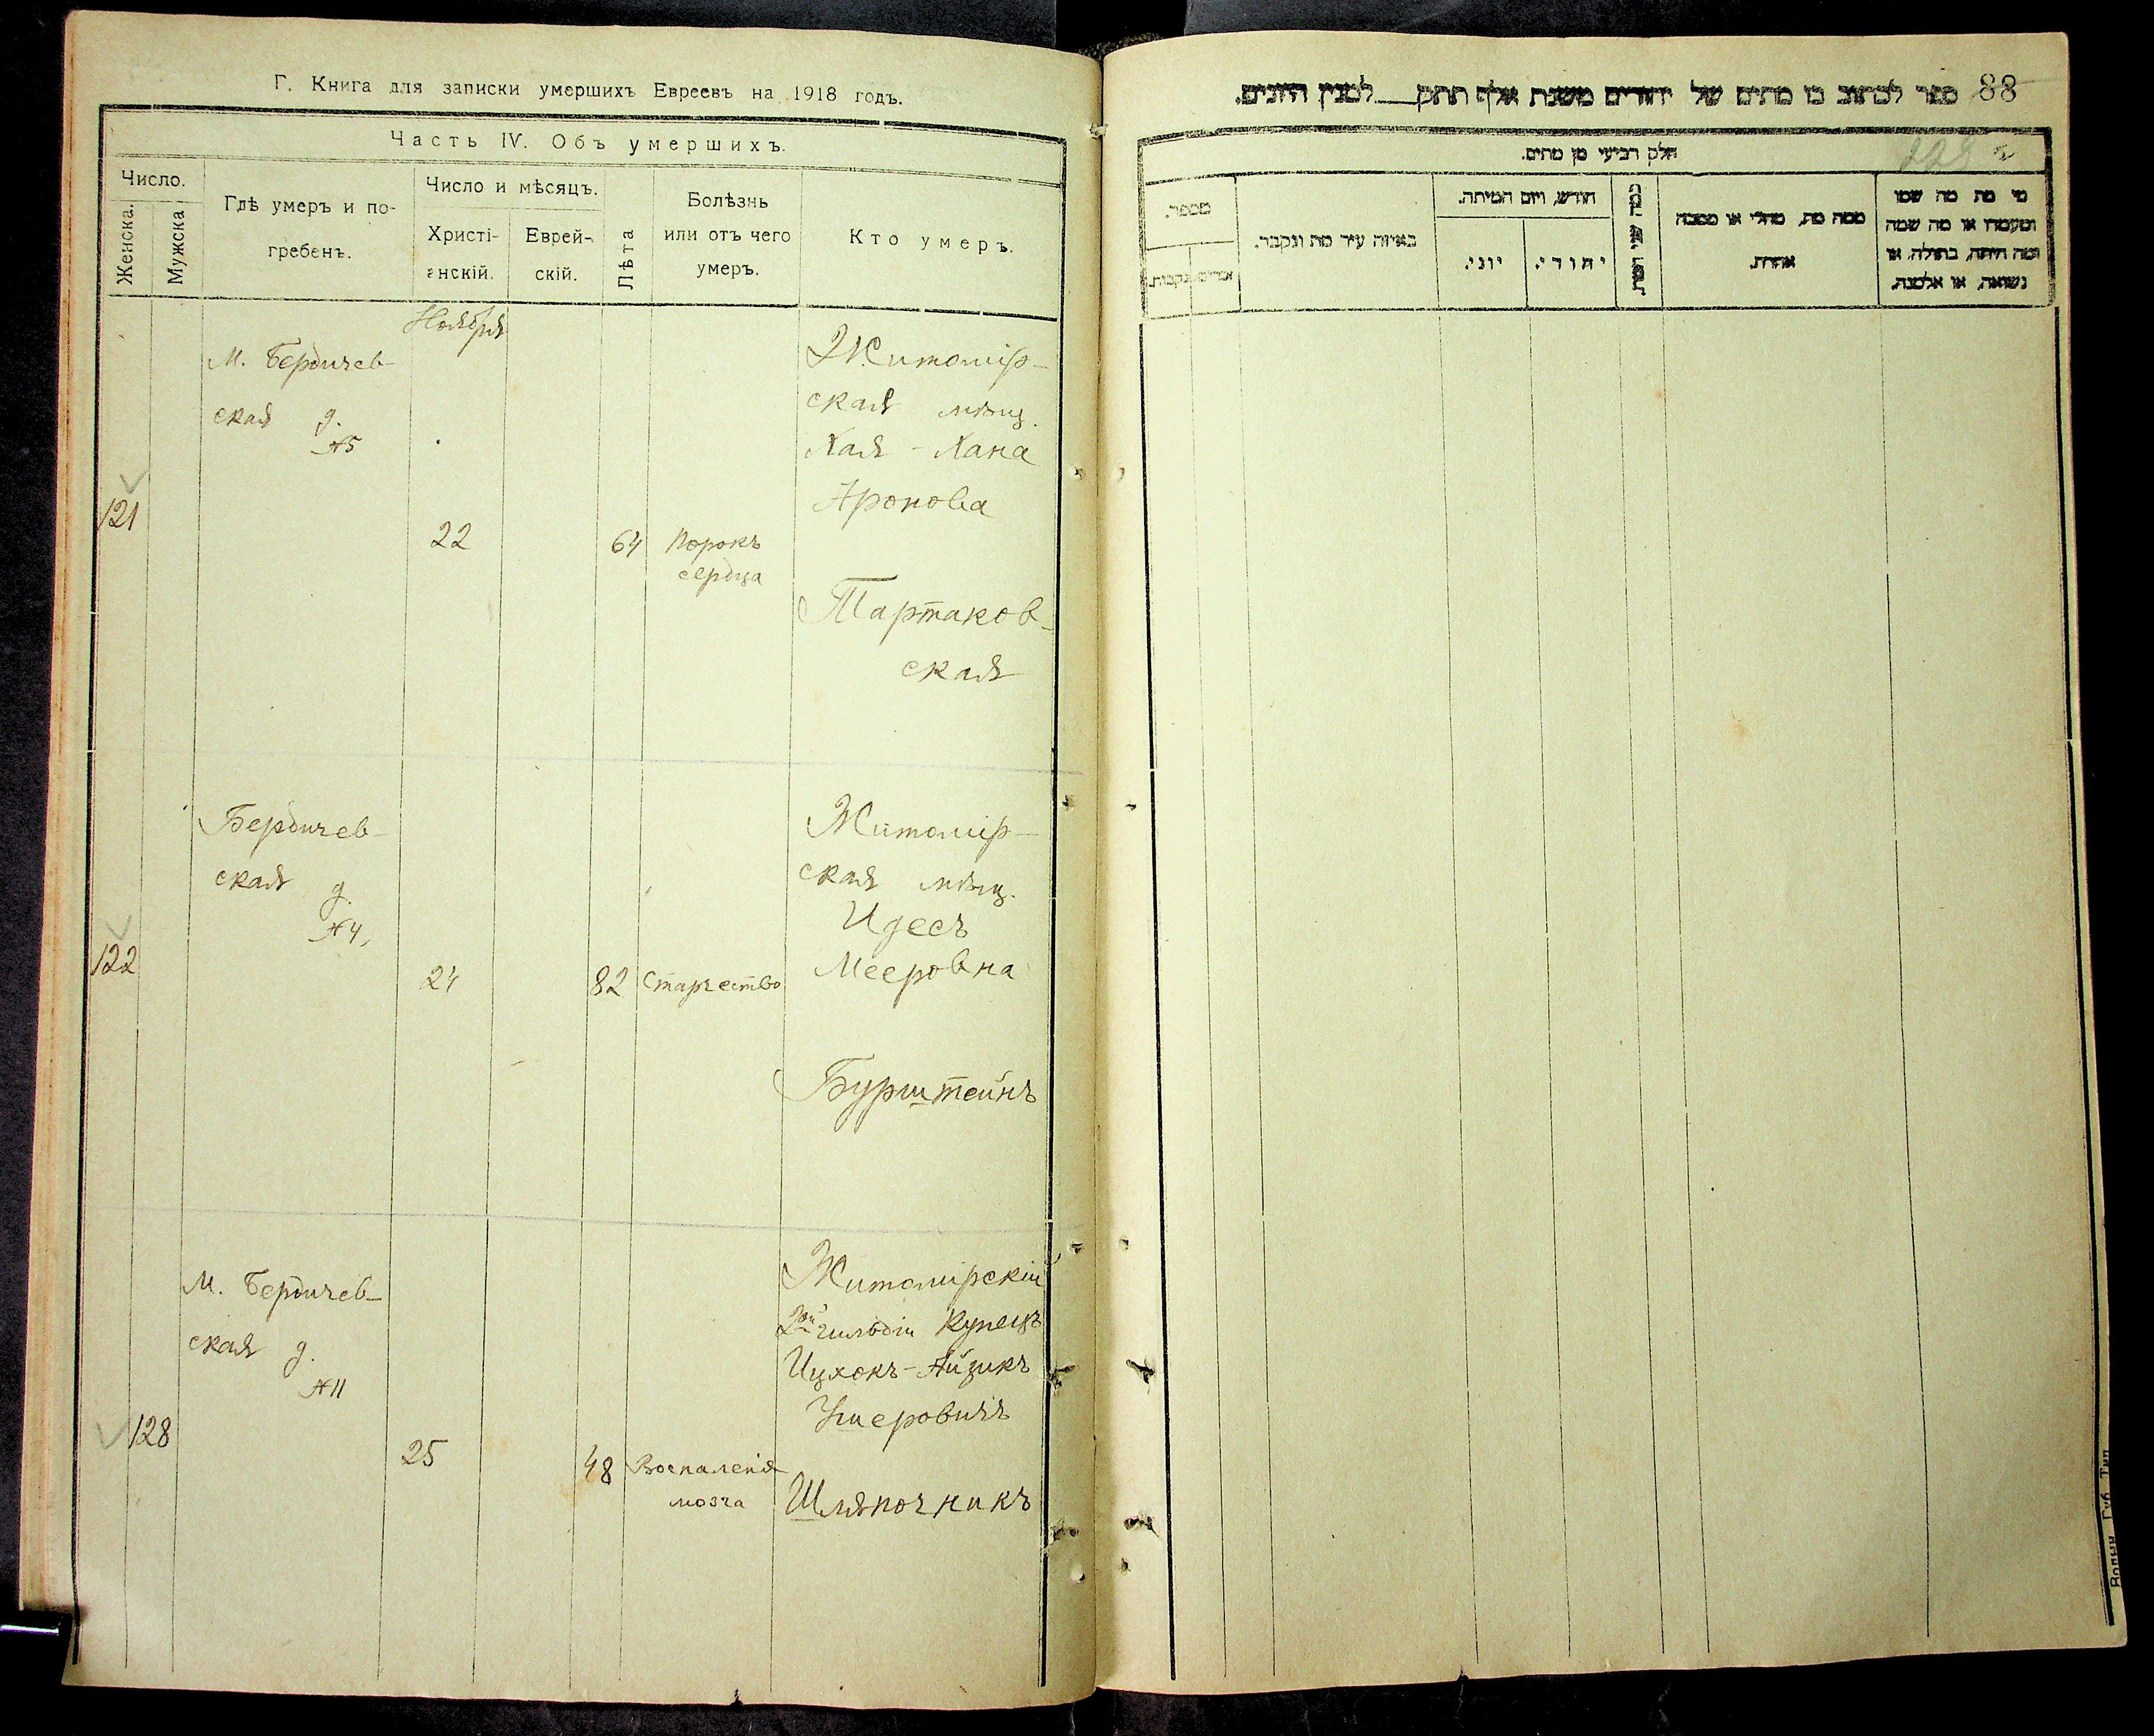 Г. Книга для записки умершихъ Евреевъ на 1918 годъ.
Часть IV. Объ умершихъ.
Число.
Женска.
Мужска
Гдѣ умеръ и по-
гребенъ.
Число и мѣсяцъ.
Христі-
анскій.
Еврей-
скій.
Лѣта
Болѣзнь
или отъ чего
умеръ.
Кто умеръ.
Ноября
121
М. Бердичев-
ская д.
№5
22
64
Порокъ
сердца
Житомір-
ская мѣщ.
Хая-Хана
Аронова
Тартаков-
ская
122
Бердичев-
ская д.
№4,
24
82
Старчество
Житомір-
ская мѣщ.
Идесъ
Мееровна
Бурштейнъ
128
М. Бердичев-
ская д.
№11
25
48
Воспаленія
мозга
Житомірскій
2ой гильдіи Купецъ
Ицхокъ-Айзикъ
Ушеровичъ
Шляпочникъ
88
ספר לכתוב בו מתים של יהודים משנת אלף תתק___למנין היונים.
חלק רביעי מן מתים.
מספר.
זכרים
נקבות.
באיזה עיר מת ונקבר.
חודש, ויום המיתה.
יוני.
יהודי.
ממה מת, מחלי או מסבה
אחרת.
מי מת מה שמו
ומעמדו או מה שמה
ומה היתה, בתולה, או
נשואה, או אלמנה.
Волын. Губ. Тип.